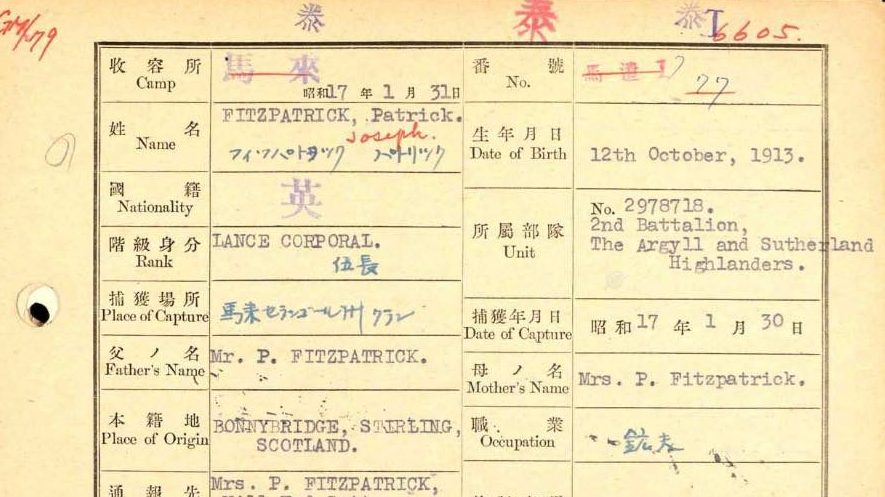 泰 泰 泰I
6605.
收容所 馬來 番號 馬遣I
Camp 昭和17年1月31日 No. 77
姓名 FITZPATRICK, Patrick. 生年月日
Name Joseph. Date of Birth 12th October, 1913.
國籍 英
Nationality
階級身分 LANCE CORPORAL.
Rank 伍長
所屬部隊 No. 2978718.
Unit 2nd Battalion,
The Argyll and Sutherland
Highlanders.
捕獲場所 馬来セランゴール州 クラン
Place of Capture
捕獲年月日 昭和17年1月30日
Date of Capture
父ノ名 Mr. P. FITZPATRICK.
Father's Name
母ノ名 Mrs. P. Fitzpatrick.
Mother's Name
本籍地 BONNYBRIDGE, STIRLING,
Place of Origin SCOTLAND.
職業 鉱夫
Occupation
通報先 Mrs. P. FITZPATRICK,